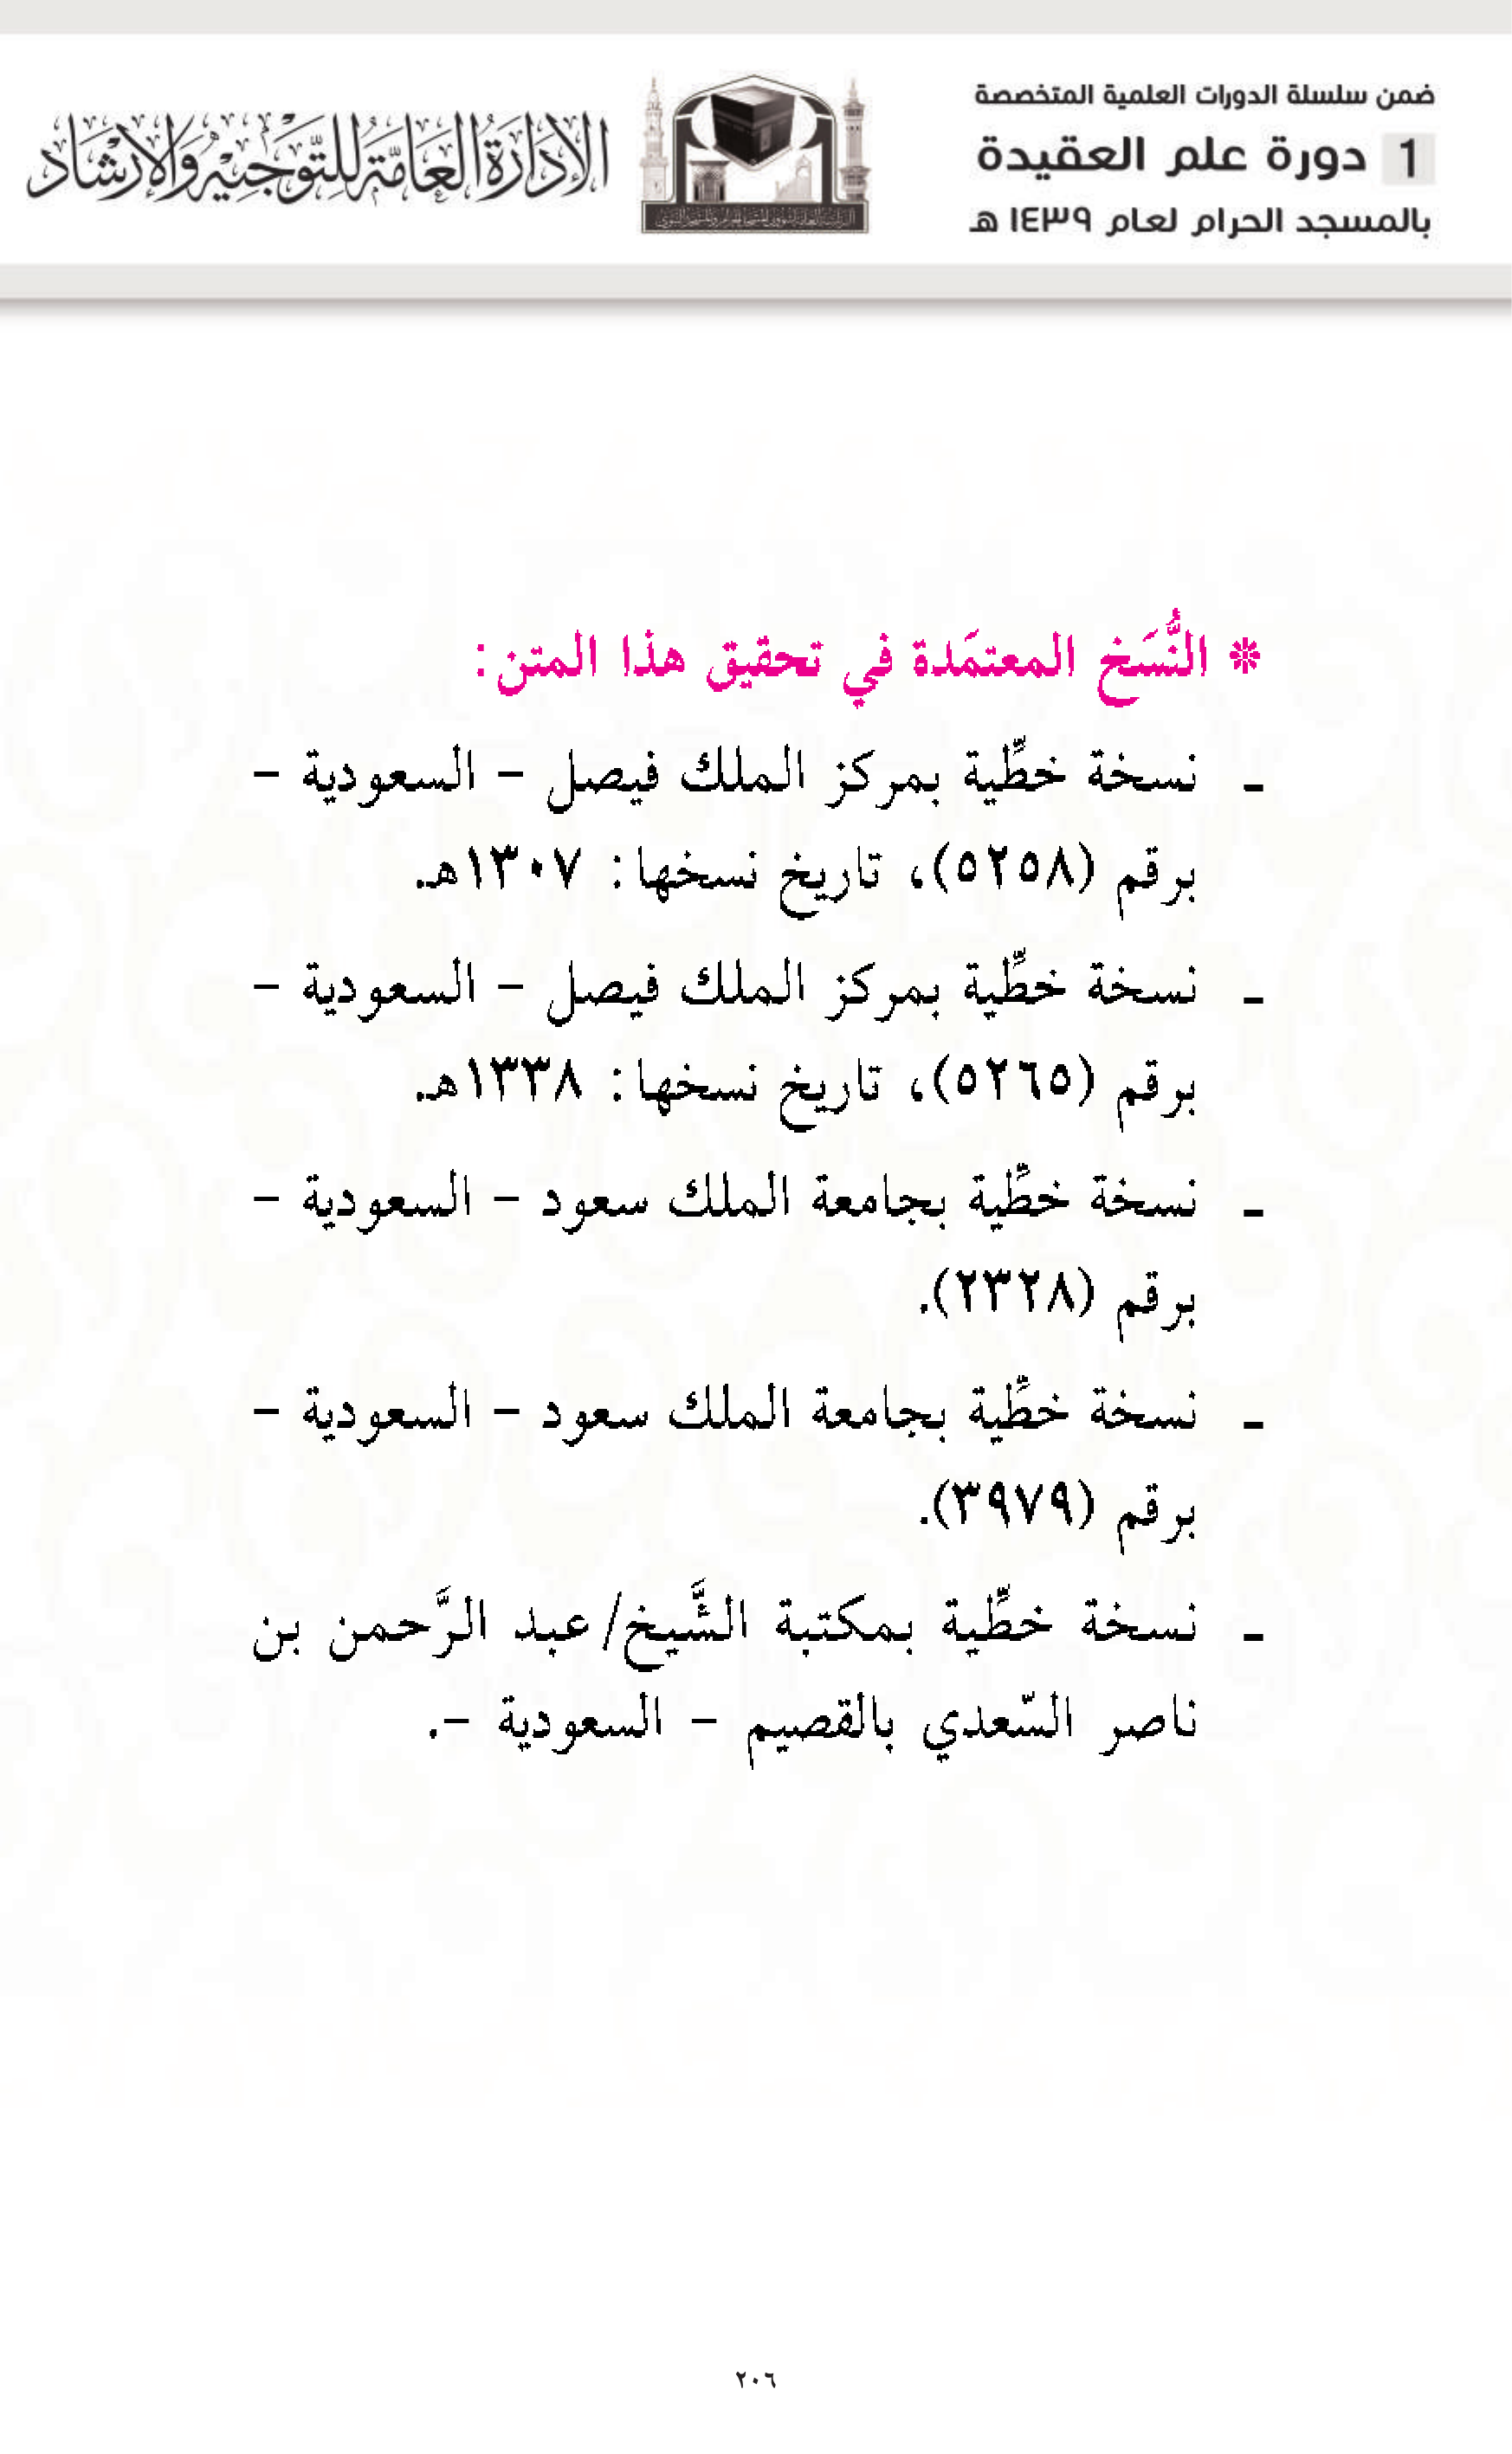 ضمن سلسلة الدورات العلمية المتخصصة
1 دورة علم العقيدة
بالمسجد الحرام لعام ١٤٣٩ هـ
الإدارة العامة للتوجيه والإرشاد
* النُّسَخ المعتمَدة في تحقيق هذا المتن:
ـ نسخة خطِّية بمركز الملك فيصل - السعودية -
برقم (٥٢٥٨)، تاريخ نسخها: ١٣٠٧هـ.
ـ نسخة خطِّية بمركز الملك فيصل - السعودية -
برقم (٥٢٦٥)، تاريخ نسخها: ١٣٣٨هـ.
ـ نسخة خطِّية بجامعة الملك سعود - السعودية -
برقم (٢٣٢٨).
ـ نسخة خطِّية بجامعة الملك سعود - السعودية -
برقم (٣٩٧٩).
ـ نسخة خطِّية بمكتبة الشَّيخ/عبد الرَّحمن بن
ناصر السّعدي بالقصيم - السعودية -.
٢٠٦